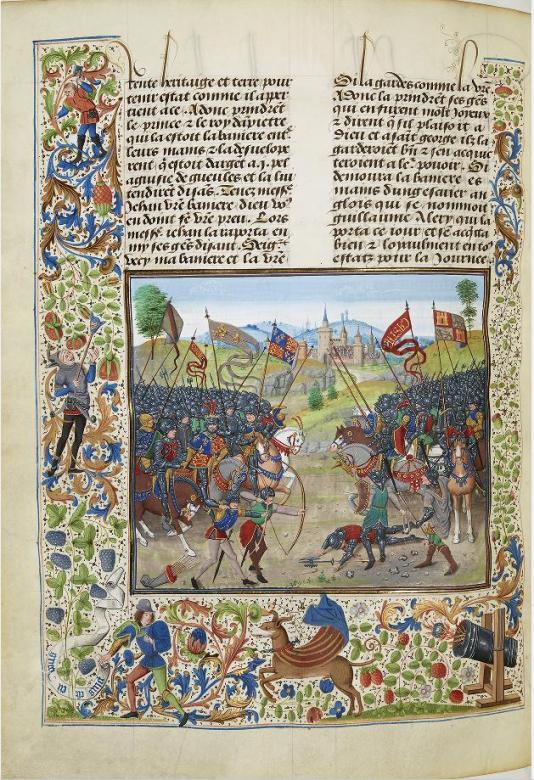 rente heritaige et terre pour
tenir estat comme il apper
tient a ce. Adonc prindrēt
le prince & le roy dāpietre
qui la estoit la baniere entͤ
leurs mains & la desuelope
rent q̄ estoit dargēt a .j. pel
aguisie de gueules et la lui
endirēt disās. Tenez messͤ
Jehan vr̄e baniere dieu vo9
en doint fẽ vr̄e preu. Lors
messͤ iehan la raporta en
my ses gēs disant. Seigrs
veez cy ma baniere et la vr̄e
Si la gardes comme la vr̄e.
Adonc la prindrēt ses gēs
qui en furent moult Joyeux
& dirent q̄ sil plaisoit a
dieu et a saīt george ilz la
garderoiēt bn̄ & sen acquic
teroient a leͬ pouoir. Si
demoura la baniere es
mains dung escuier an
glois que se nommoit
guillaume Alery qui la
porta ce iour et se acq̄ta
bien & loyaulment en to9
estatz pour la Journee.